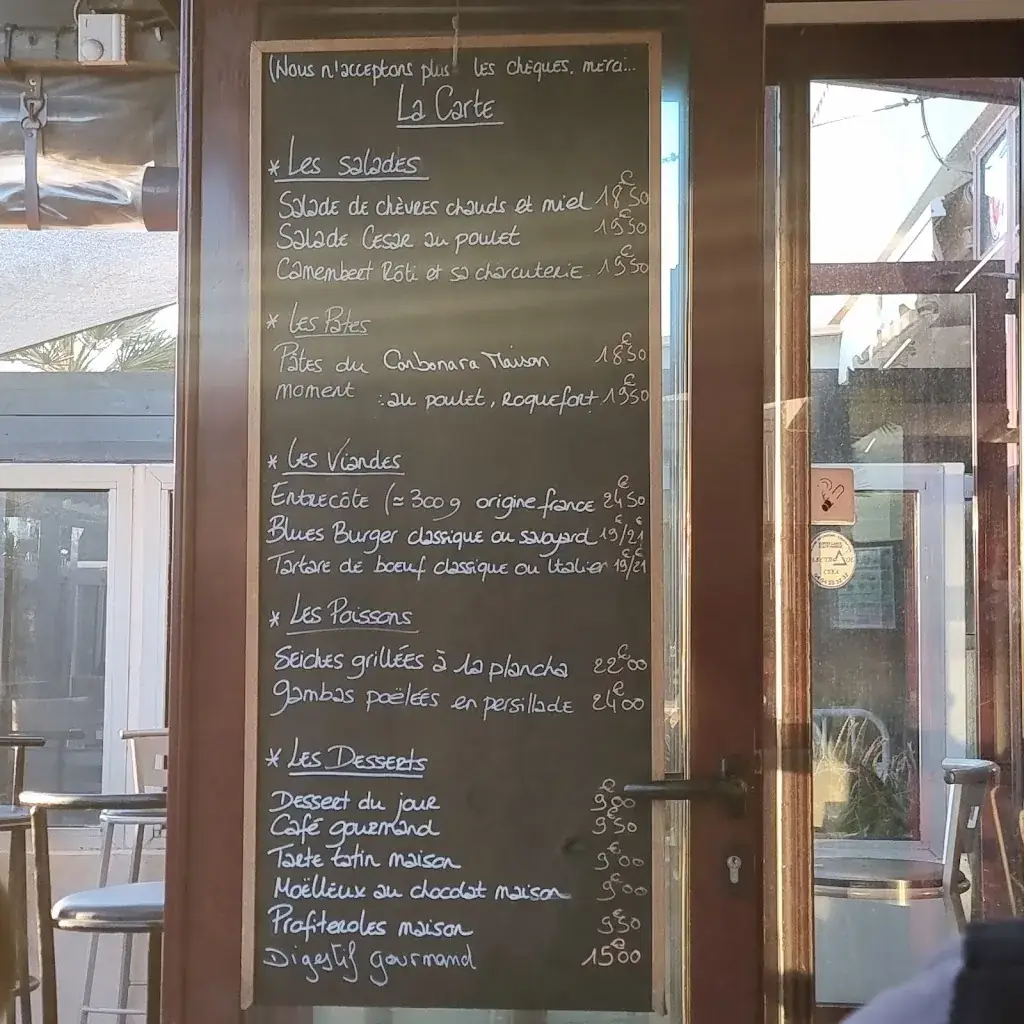 (Nous n'acceptons plus les chèques, merci...
La Carte
* Les salades
Salade de chèvres chauds et miel 18€50
Salade Cesar au poulet 19€50
Camembert Rôti et sa charcuterie 19€50
* Les Pâtes
Pâtes du Carbonara Maison 18€50
moment : au poulet, Roquefort 19€50
* Les Viandes
Entrecôte (≃ 300g origine france 24€50
Blues Burger classique ou savoyard 19€/21€
Tartare de boeuf classique ou Italien 19€/21€
* Les Poissons
Seiches grillées à la plancha 22€00
Gambas poëlées en persillade 24€00
* Les Desserts
Dessert du jour 9€00
Café gourmand 9€50
Tarte tatin maison 9€00
Moëlleux au chocolat maison 9€00
Profiteroles maison 9€50
Digestif gourmand 15€00